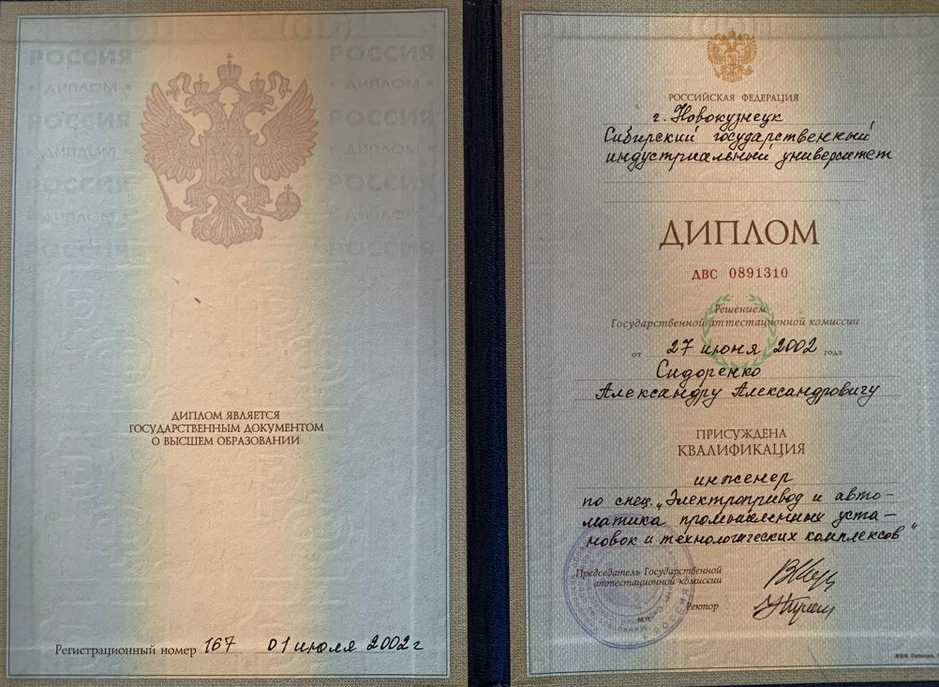 РОССИЯ РОССИЯ
• ДИПЛОМ • • ДИПЛОМ •
РОССИЯ РОССИЯ
• ДИПЛОМ • • ДИПЛОМ •
РОССИЯ РОССИЯ
• ДИПЛОМ • • ДИПЛОМ •
РОССИЯ РОССИЯ
ДИПЛОМ ЯВЛЯЕТСЯ
ГОСУДАРСТВЕННЫМ ДОКУМЕНТОМ
О ВЫСШЕМ ОБРАЗОВАНИИ
Регистрационный номер 167 01 июля 2002 г
РОССИЙСКАЯ ФЕДЕРАЦИЯ
г. Новокузнецк
Сибирский государственный
индустриальный университет
ДИПЛОМ
ДВС 0891310
Решением
Государственной аттестационной комиссии
от 27 июня 2002 года
Сидоренко
Александру Александровичу
ПРИСУЖДЕНА
КВАЛИФИКАЦИЯ
инженер
по спец. „Электропривод и авто-
матика промышленных уста-
новок и технологических комплексов"
Председатель Государственной
аттестационной комиссии
Ректор
М.П.